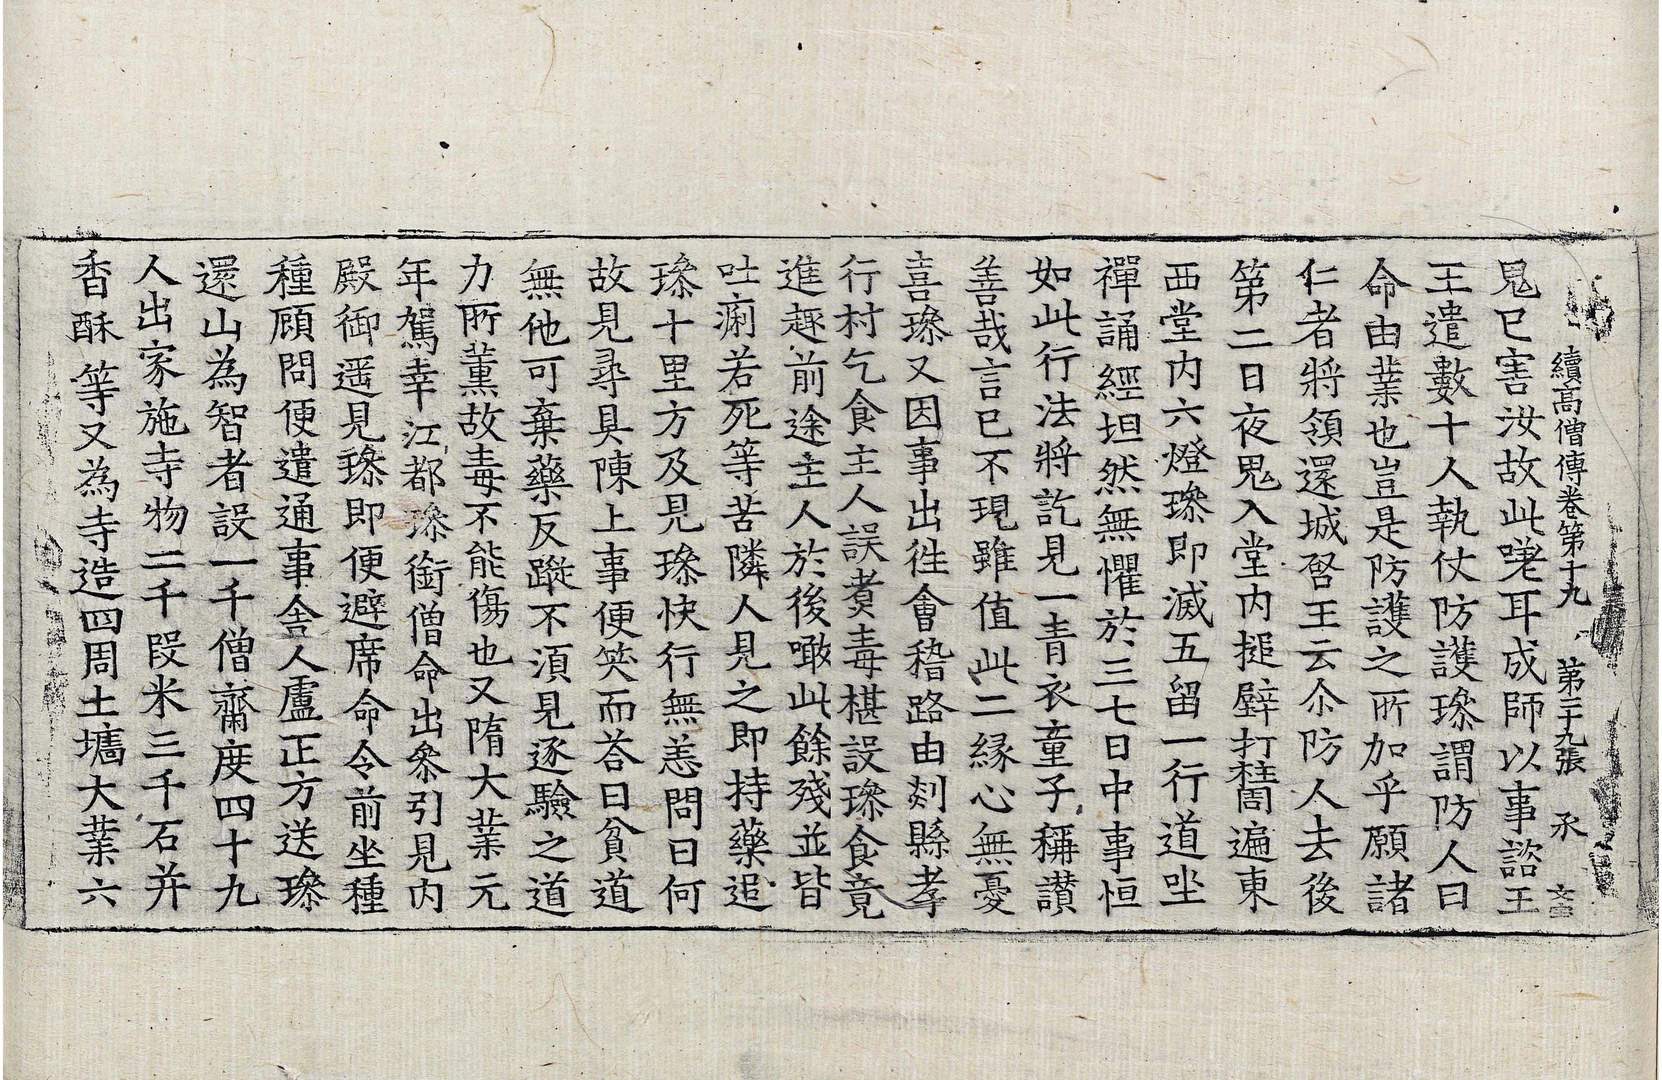 續高僧傳卷第十九　第二十九張　承
鬼已害汝故此嘊耳成師以事諮王
王遣數十人執仗防護璪謂防人曰
命由業也豈是防護之所加乎願諸
仁者將領還城啓王云尒防人去後
第二日夜鬼入堂內搥壁打拄周遍東
西堂內六燈璪即滅五留一行道坐
禪誦經坦然無懼於三七日中事恒
如此行法將訖見一青衣童子稱讃
善哉言已不現雖值此二緣心無憂
喜璪又因事出往會稽路由剡縣孝
行村乞食主人誤煑毒椹設璪食竟
進趣前途主人於後噉此餘殘並皆
吐痢若死等苦隣人見之即持藥追
璪十里方及見璪快行無恙問曰何
故見尋具陳上事便笑而荅曰貧道
無他可棄藥反蹤不湏見逐驗之道
力所薰故毒不能傷也又隋大業元
年駕幸江都璪銜僧命出叅引見內
殿御遥見璪即便避席命令前坐種
種顧問便遣通事舍人盧正方送璪
還山為智者設一千僧齋度四十九
人出家施寺物二千段米三千石并
香酥等又為寺造四周土墻大業六